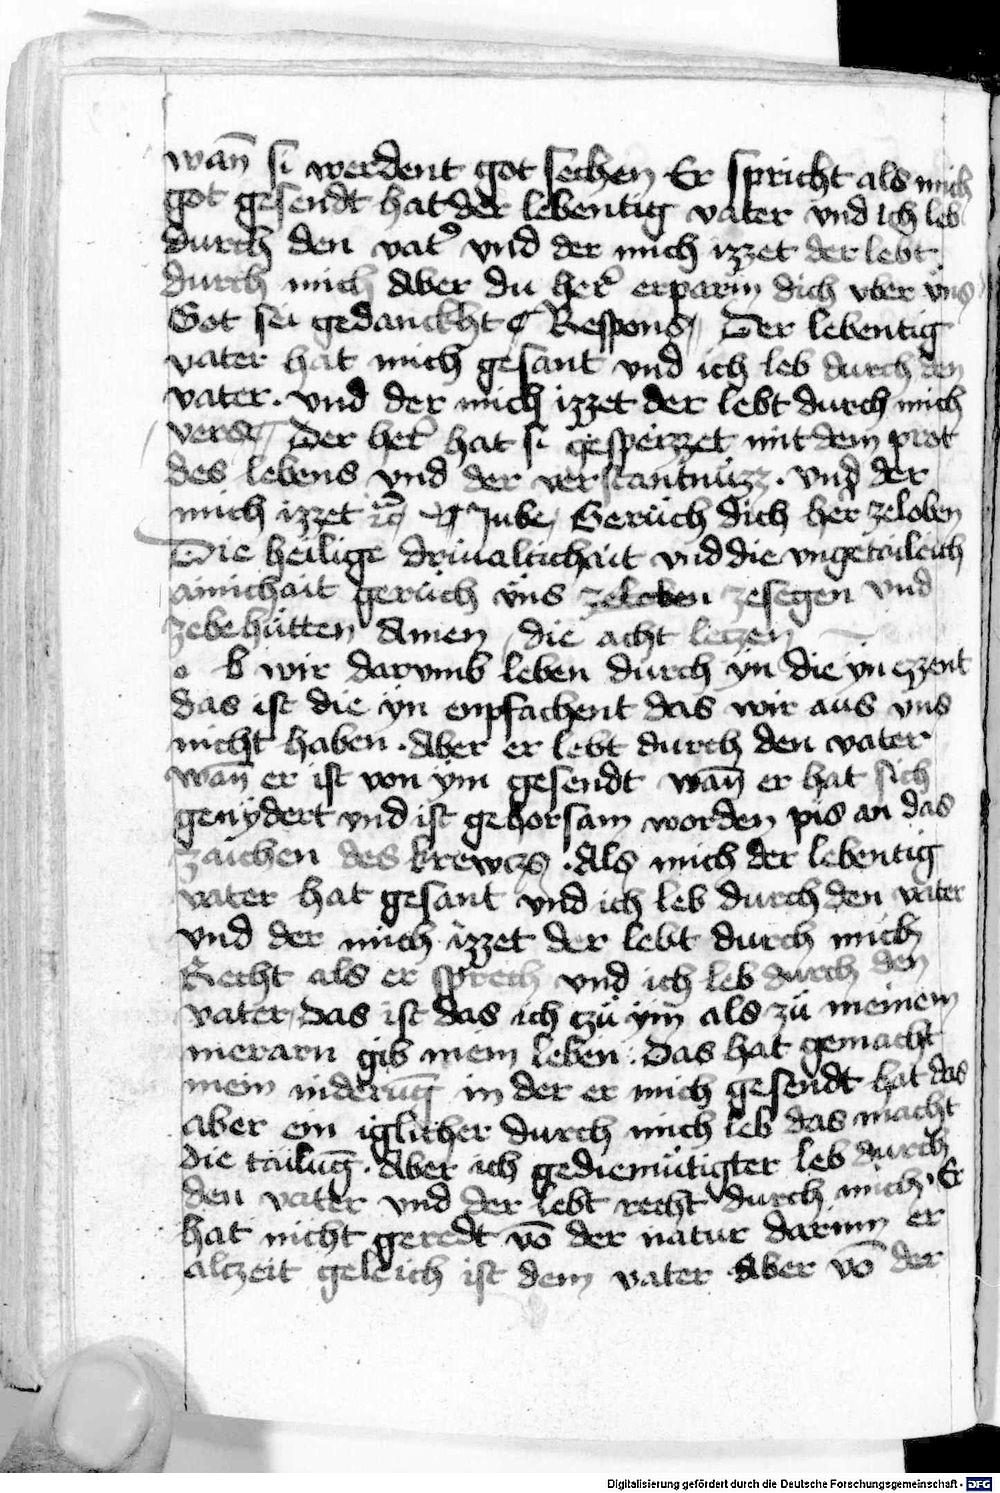 wan̄ si werdent got sechen Er spricht als mich
got gesendt hat der lebentig vater vnd ich leb
durch den vat᷒ vnd der mich izzet der lebt
durch mich Aber du her᷒ erparm dich vber vns
Got sei gedanckht ¶ Respons Der lebentig
vater hat mich gesant vnd ich leb durch den
vater . vnd der mich izzet der lebt durch mich
vers Der her᷒ hat si gespeizzet mit dem prot
des lebens vnd der verstantnüzz . vnd der
mich izzet ꝛc̄ ¶ Jube Gerüch dich her zeloben
Die heilige driualtichait vnd die vngetaileich
ainichait gerüch vns zeloben zesegen vnd
zebehütten Amen die acht leczen
o b wir darvmb leben durch yn die yn ezzent
das ist die yn enpfachent das wir aus vns
nicht haben . Aber er lebt durch den vater
wan̄ er ist von ym gesendt wan̄ er hat sich
genydert vnd ist gehorsam worden pis an das
zaichen des krewczs . Als mich der lebentig
vater hat gesant vnd ich leb durch den vater
vnd der mich izzet der lebt durch mich
Recht als er sprech vnd ich leb durch den
vater das ist das ich czü ym als zü meinem
merarn gib mein leben . Das hat gemacht
mein niderūg in der er mich gesendt hat das
aber ein iglicher durch mich leb das macht
die tailūg . Aber ich gediemütigter leb durch
den vater vnd der lebt recht durch mich . Er
hat nicht geredt vō der natur darinn er
alczeit geleich ist dem vater . Aber vō der
Digitalisierung gefördert durch die Deutsche Forschungsgemeinschaft - DFG